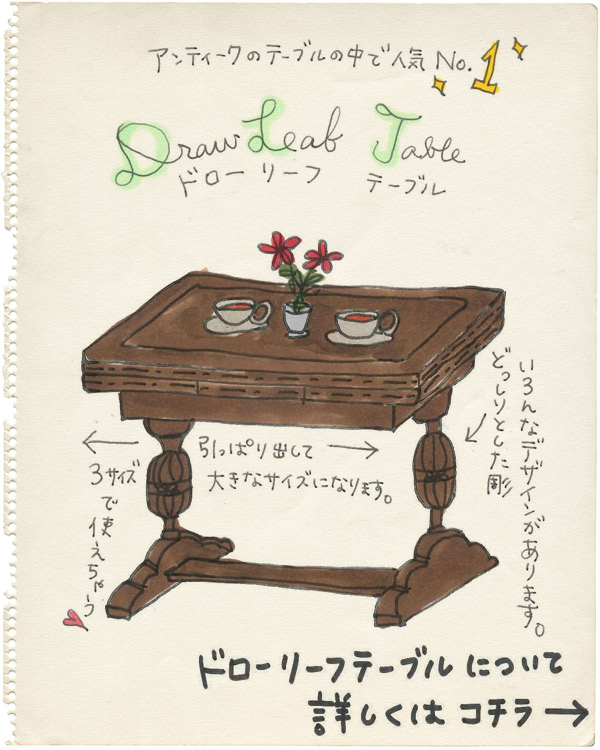 アンティークのテーブルの中で人気 No.1
Draw Leaf Table
ドローリーフ テーブル
引っぱり出して
大きなサイズになります。
3サイズで使えちゃう
どっしりとした彫
いろんなデザインがあります。
ドローリーフテーブルについて
詳しくは コチラ→